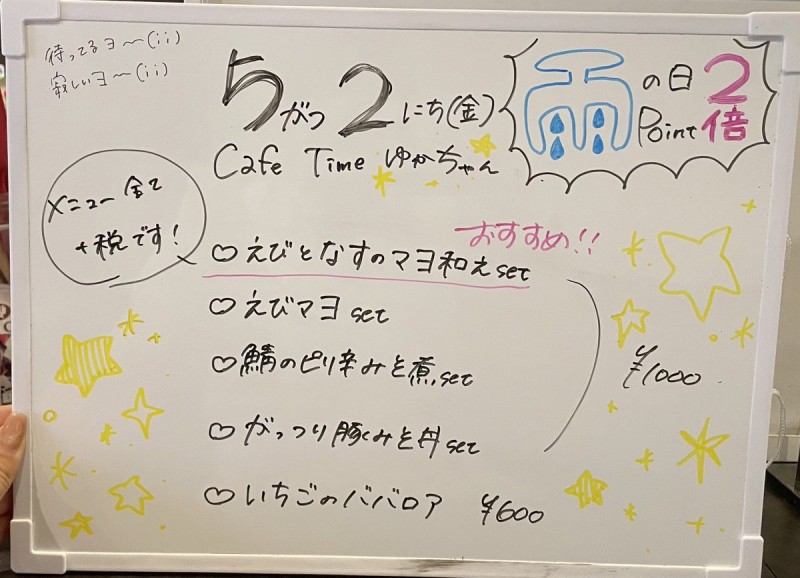 待ってるヨ〜(ii)
寂しいヨ〜(ii)
5がつ2にち(金)
雨の日 Point 2倍
Cafe Time ゆかちゃん
メニュー全て
+税です!
おすすめ!!
♡えびとなすのマヨ和えset
♡えびマヨset
♡鯖のピリ辛みそ煮set
♡がっつり豚みそ丼set
¥1000
♡いちごのババロア ¥600